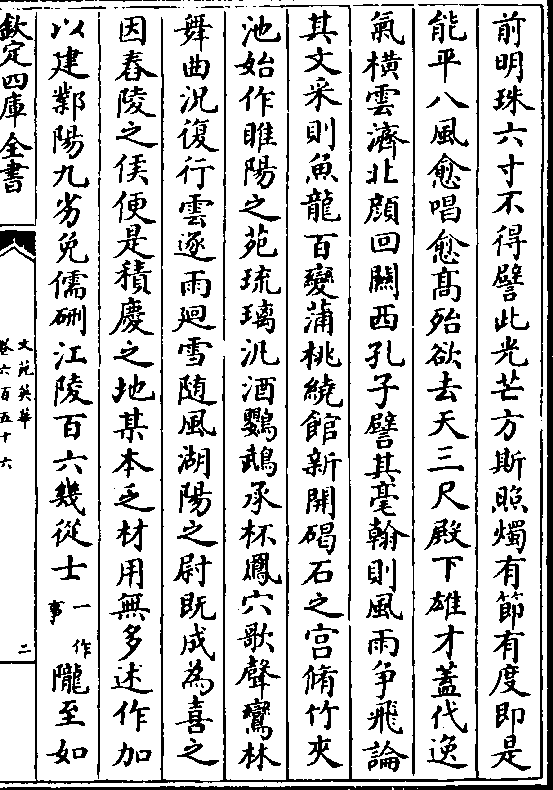 前明珠六寸不得譬此光芒方斯照燭有節有度即是
能平八風愈唱愈髙殆欲去天三尺殿下雄才蓋代逸
氣橫雲濟北顔回闗西孔子譬其毫翰則風雨争飛論
其文采則魚龍百變蒲桃繞館新開碣石之宫脩竹夾
池始作睢陽之苑琉璃汎酒鸚鵡承杯鳳穴歌聲鸞林
舞曲況復行雲逐雨廻雪随風湖陽之尉既成為喜之
因舂陵之侯便是積慶之地某本乏材用無多述作加
以建鄴陽九劣免儒硎江陵百六幾從士一作事隴至如
欽定四庫全書
文苑英華
卷六百五十六
二